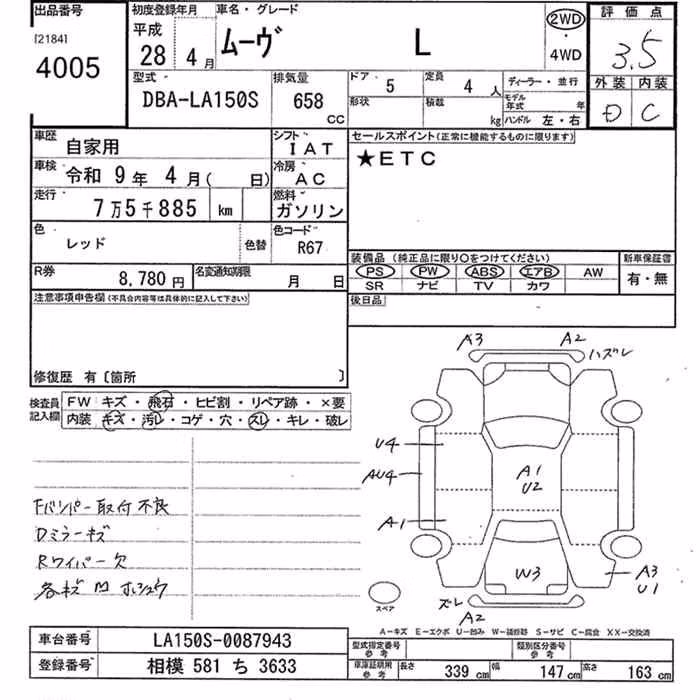 出品番号 初度登録年月 車名・グレード 評価点
[2184] 平成 ムーヴ L 2WD 3.5
4005 28 4月 ・ 4WD
型式 排気量 ドア 5 定員 4人 ディーラー・並行 外装 内装
DBA-LA150S 658 CC 形状 積載 kg モデル年式 年 D C
ハンドル 左・右
車歴 自家用 シフト IAT セールスポイント(正常に機能するものに限ります)
車検 令和 9年 4月( 日) 冷房 AC ★ETC
走行 7万5千885 km 燃料 ガソリン
色 レッド 色替 色コード R67
装備品 (純正品に限り○をつけてください) 新車保証書
PS PW ABS エアB AW 有・無
SR ナビ TV カワ
R券 8,780円 名変通知期限 月 日
後日品
注意事項申告欄(不具合内容等は具体的に記入して下さい)
修復歴 有〔箇所 〕
検査員記入欄 FW キズ・飛石・ヒビ割・リペア跡・×要
内装 キズ・汚レ・コゲ・穴・スレ・キレ・破レ
A3 A2
ハズレ
U4
AU4
A1
A1
U2
W3
A3
U1
ズレ
A2
スペア
Fバンパー取付不良
Dミラーキズ
Rワイパー欠
各キズ凹ホシュウ
A-キズ E-エクボ U-凹み W-補修跡 S-サビ C-腐食 XX-交換済
車台番号 LA150S-0087943 型式指定番号 参考 類別区分番号 参考
登録番号 相模 581 ち 3633 車庫証明用 参考 長さ 339 cm 幅 147 cm 高さ 163 cm